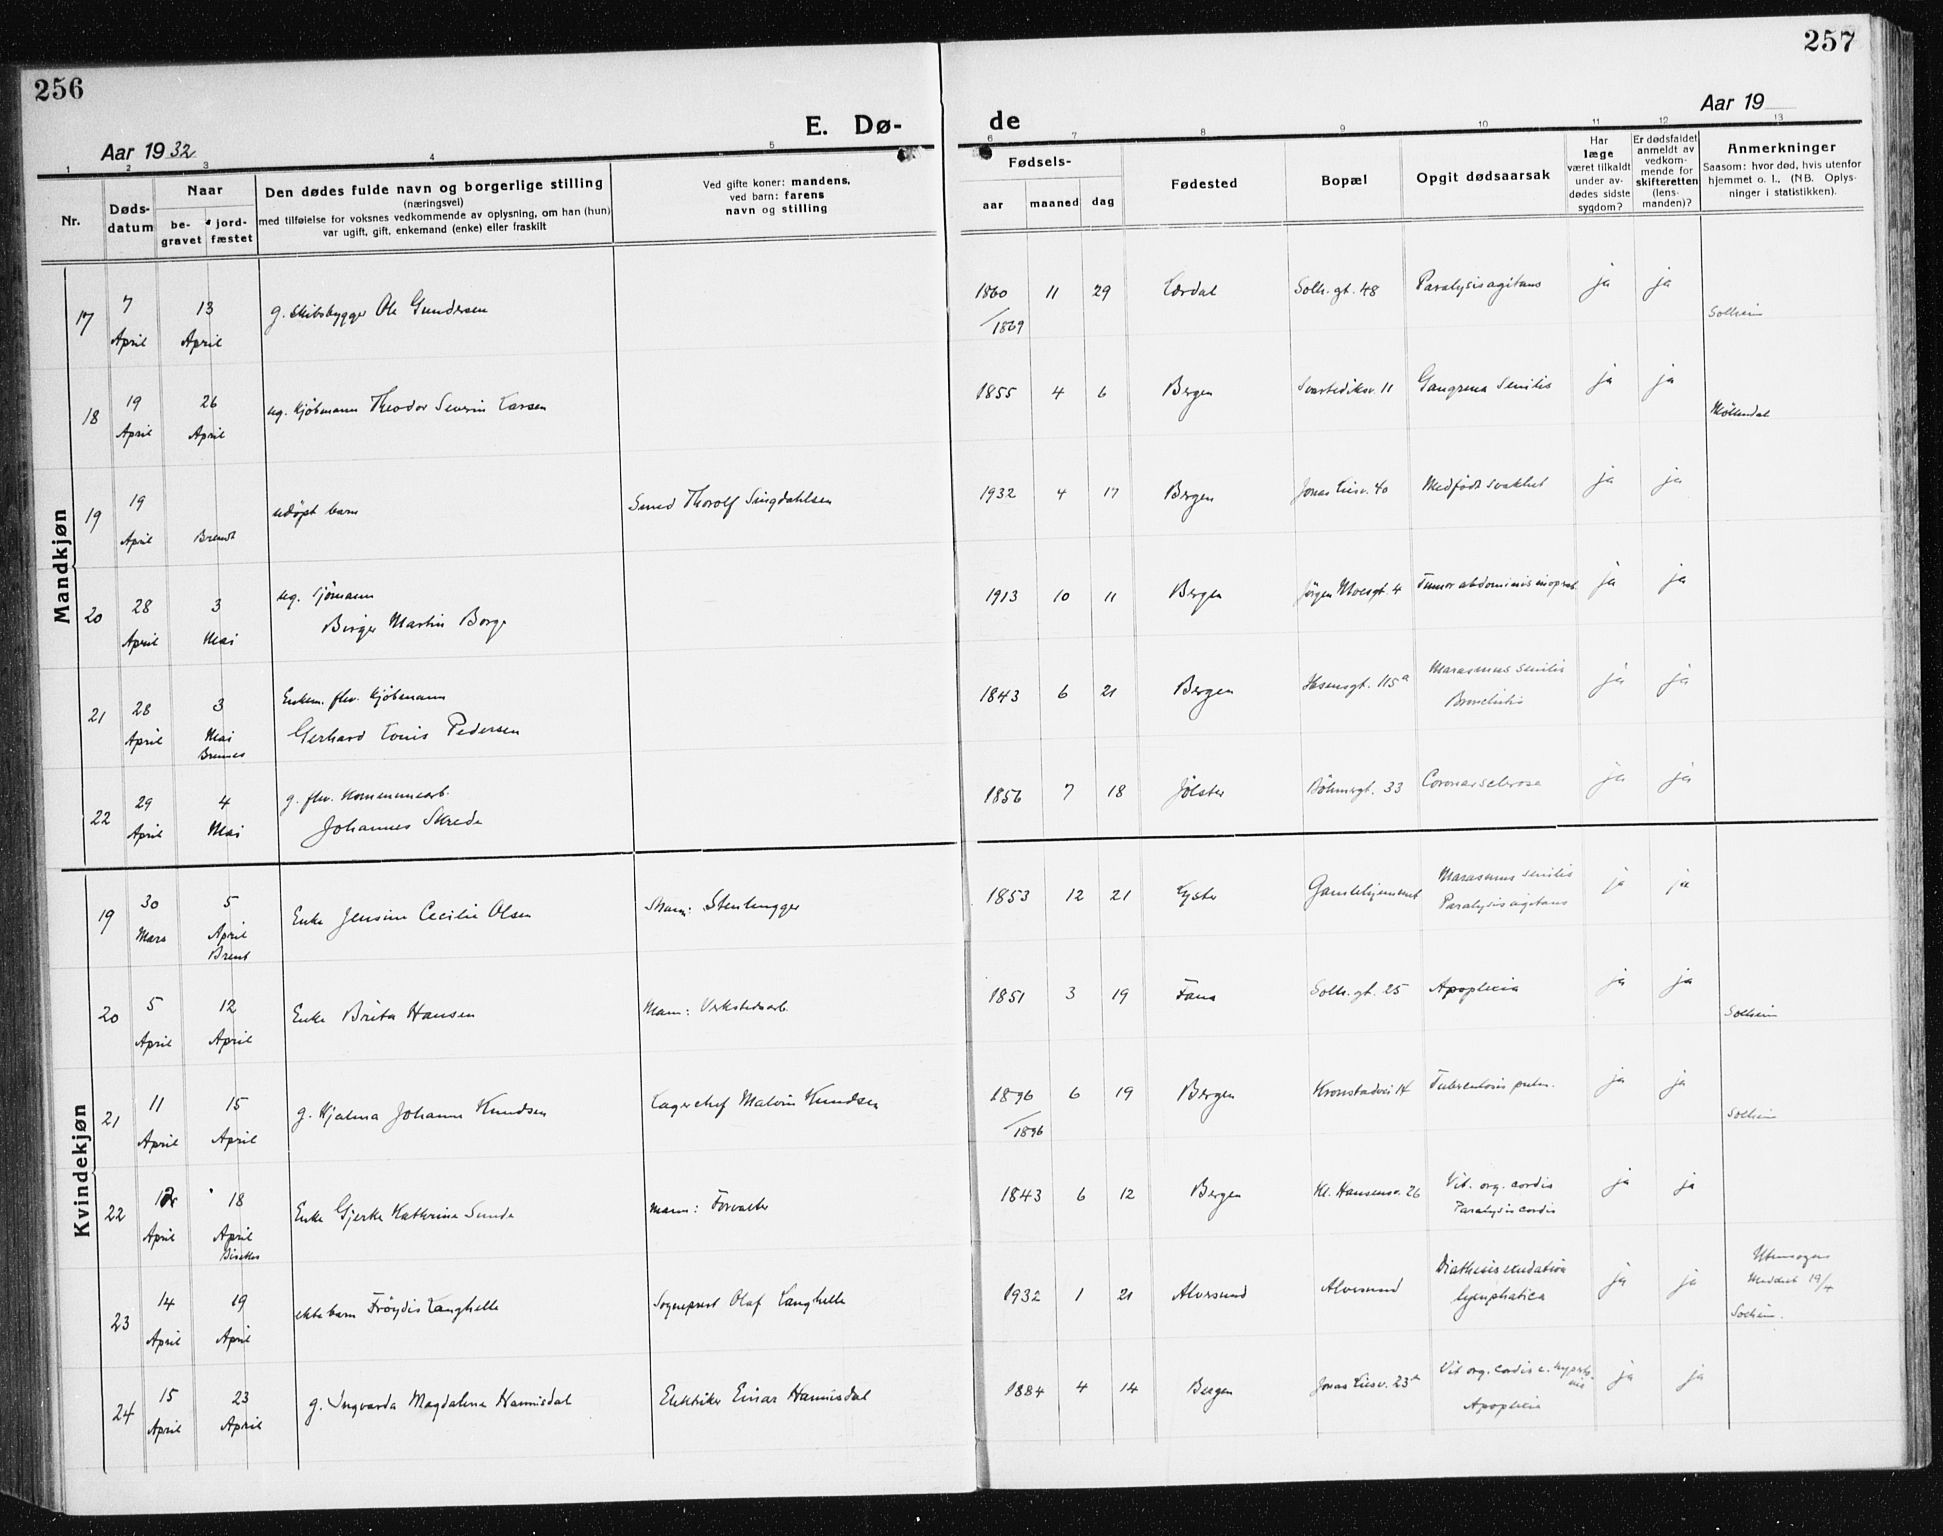 256
257
E. Dø-
de
Aar 1932
Aar 19
1 2 3 4 5 6 7 8 9 10 11 12 13
Nr.
Døds-
datum
Naar
be-
gravet
jord-
fæstet
Den dødes fulde navn og borgerlige stilling
(næringsvei)
med tilføielse for voksnes vedkommende av oplysning, om han (hun)
var ugift, gift, enkemand (enke) eller fraskilt
Ved gifte koner: mandens,
ved barn: farens
navn og stilling
Fødsels-
aar maaned dag
Fødested
Bopæl
Opgit dødsaarsak
Har
læge
været tilkaldt
under av-
dødes sidste
sygdom?
Er dødsfaldet
anmeldt av
vedkom-
mende for
skifteretten
(lens-
manden)?
Anmerkninger
Saasom: hvor død, hvis utenfor
hjemmet o. l., (NB. Oplys-
ninger i statistikken).
Mandkjøn
17 7 13 g. skibsbygger Ole Gundersen 1860 11 29 Lærdal Solh. gt. 48 Paralysis agitans ja ja
April April /1869 Solheim
18 19 26 ug. kjøbmann Theodor Severin Larsen 1855 4 6 Bergen Svartediksv. 11 Gangrena senilis ja ja
April April Møllendal
19 19 udøpt barn Smed Thorolf Singdahlsen 1932 4 17 Bergen Jonas Liesv. 40 Medfødt svakhet ja ja
April Brendt
20 28 3 ug. sjømann 1913 10 11 Bergen Jørgen Moesgt. 4 Tumor abdominis inoprab. ja ja
April Mai Birger Martin Borge
21 28 3 Enkem. fhv. kjøbmann 1843 6 21 Bergen Ibsensgt. 115a Marasmus senilis ja ja
April Mai Gerhard Louis Pedersen Bronchitis
22 29 4 g. fhv. kommunearb. 1856 7 18 Jølster Bøhmergt. 33 Coronarsclerose ja ja
April Mai Johannes Skrede
Kvindekjøn
19 30 5 Enke Jensine Cecilie Olsen Mann: Stenhugger 1853 12 21 Lyster Gamlehjemmet Marasmus senilis ja ja
Mars April Paralysis agitans
Brent
20 5 12 Enke Brita Hansen Mann: Verkstedsarb. 1851 3 19 Fana Solh. gt. 25 Apoplexia ja ja
April April Solheim
21 11 15 g. Hjalma Johanne Knudsen Lagerchef Malvin Knudsen 1896 6 19 Bergen Kronstadvei 14 Tuberculosis pulm. ja ja
April April /1896 Solheim
22 12 18 Enke Gjerke Kathrine Sunde Mann: Forvalter 1843 6 12 Bergen Kl. Hansensv. 26 Vit. org. cordis ja ja
April April Paralysis cordis
23 14 19 ekte barn Frøydis Langhelle Sogneprest Olaf Langhelle 1932 1 21 Alversund Alversund Diathesis exudativa ja ja Utensogns
April April lymphatica Meddelt 19/4
Solheim.
24 15 23 g. Ingvarda Magdalena Hannisdal Elektriker Einar Hannisdal 1884 4 14 Bergen Jonas Liesv. 23a Vit. org. cordis c. hyperto- ja ja
April April nia
Apoplexia